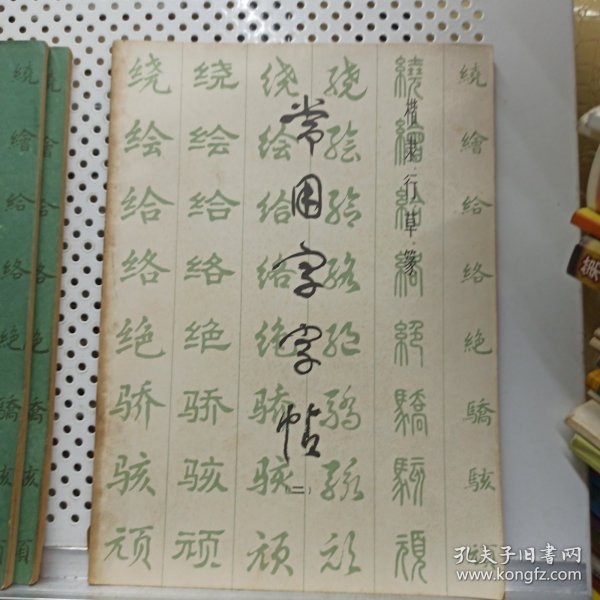 常用字字帖
（二）
楷·隶·行·草·篆
绕 绕 绕 绕 繞 繞
绘 绘 绘 绘 繪 繪
给 给 给 给 給 給
络 络 络 络 絡 絡
绝 绝 绝 绝 絕 絕
骄 骄 骄 骄 驕 驕
骇 骇 骇 骇 駭 駭
顽 顽 顽 顽 頑
繞
繪
給
絡
絕
驕
駭
頑
孔夫子旧书网
www.kongfz.com